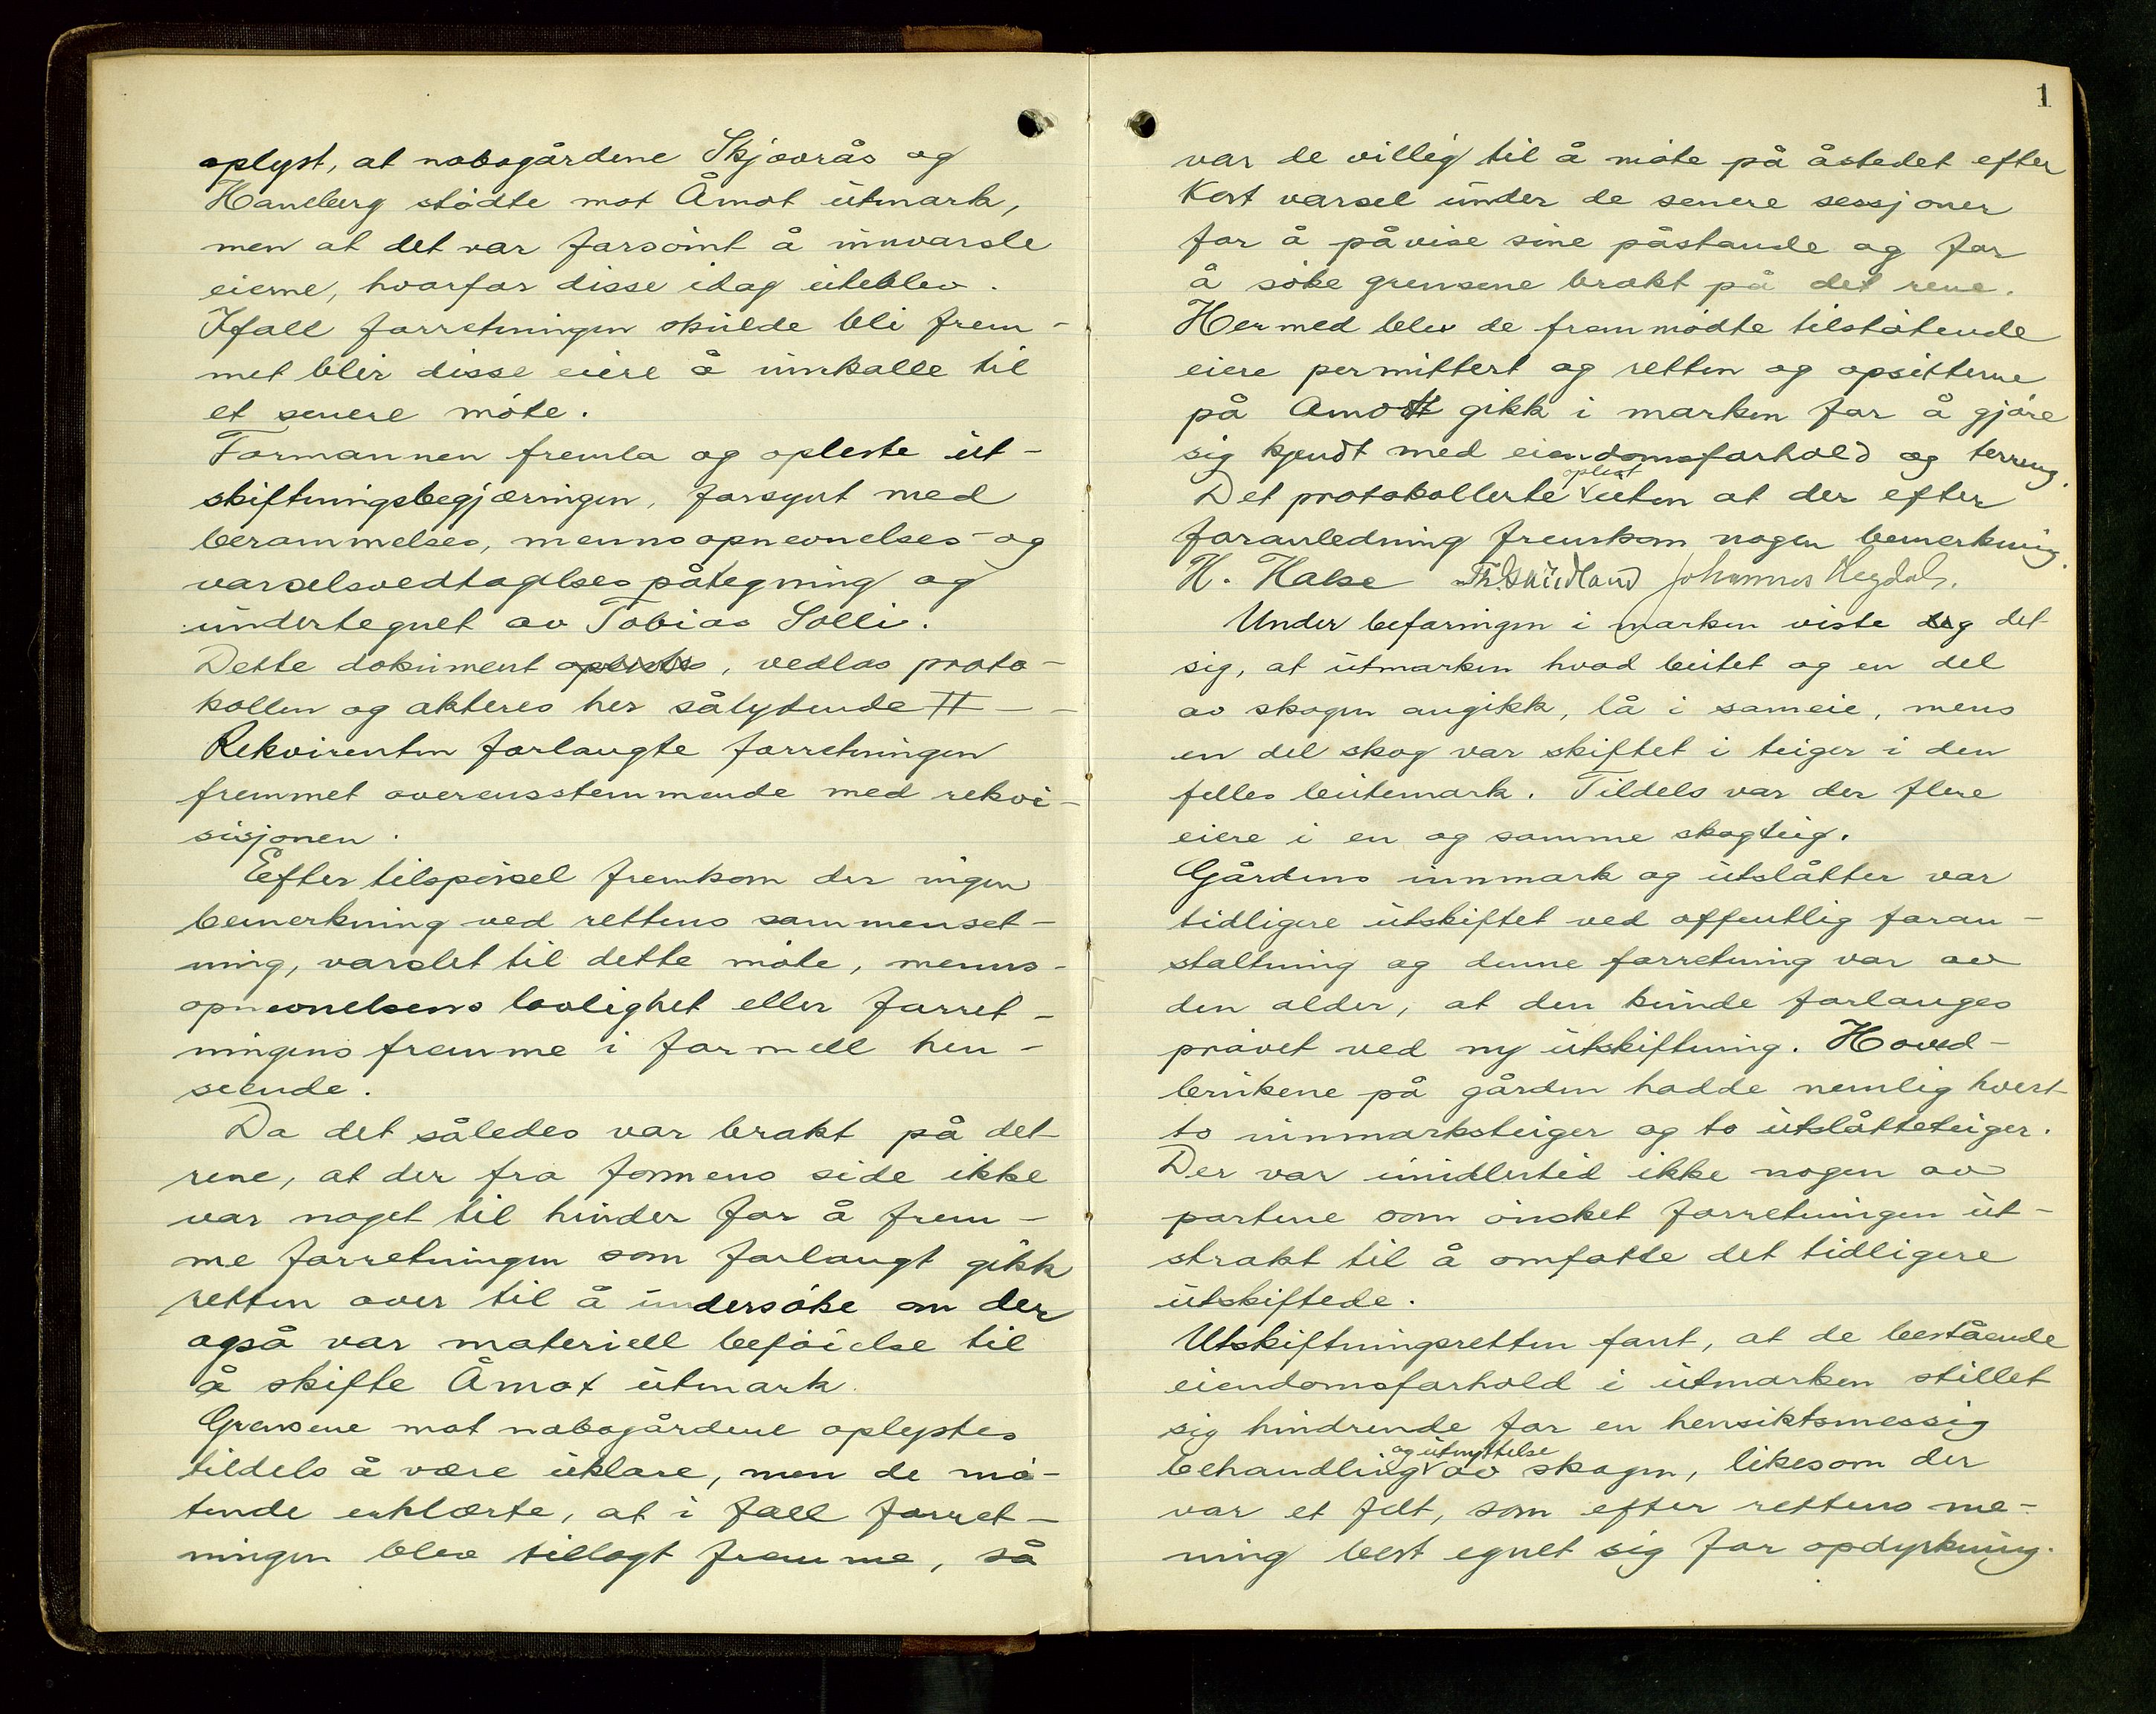 oplyst, at nabogårdene Skjavrås og
Haneberg stødte mot Åmot utmark,
men at det var forsømt å innvarsle
eierne, hvorfor disse idag uteblev.
Ifall forretningen skulde bli frem-
met blir disse eiere å innkalle til
et senere møte.
Formannen fremla og opleste ut-
skiftningsbegjæringen, forsynt med
berammelses, mennsopnevnelses- og
varselsvedtagelsespåtegning og
undertegnet av Tobias Solli.
Dette dokument oplestes, vedlas proto-
kollen og akteres her sålydende #--
Rekvirenten forlangte forretningen
fremmet overensstemmende med rekvi-
sisjonen.
Efter tilspørsel fremkom der ingen
bemerkning ved rettens sammenset-
ning, varslet til dette møte, menns-
opnevnelsens lovlighet eller forret-
ningens fremme i formell hen-
seende.
Da det således var brakt på det
rene, at der fra formens side ikke
var noget til hinder for å frem-
me forretningen som forlangt gikk
retten over til å undersøke om der
også var materiell beføielse til
å skifte Åmot utmark.
Grensene mot nabogårdene oplystes
tildels å være uklare, men de mø-
tende erklærte, at i fall forret-
ningen blev tillagt fremme, så
1
var de villig til å møte på åstedet efter
kort varsel under de senere sessjoner
for å påvise sine påstande og for
å søke grensene brakt på det rene.
Hermed blev de fremmødte tilstøtende
eiere permittert og retten og opsitterne
på Amott gikk i marken for å gjøre
sig kjendt med eiendomsforhold og terreng.
oplest
Det protokollerte uten at der efter
foranledning fremkom nogen bemerkning.
H. Halse Th. Johannes Hegdal.
Under befaringen i marken viste deg det
sig, at utmarken hvad beitet og en del
av skogen angikk, lå i sameie, mens
en del skog var skiftet i teiger i den
felles beitemark. Tildels var der flere
eiere i en og samme skogteig.
Gårdens innmark og utslåtter var
tidligere utskiftet ved offentlig foran-
staltning og denne forretning var av
den alder, at den kunde forlanges
prøvet ved ny utskiftning. Hoved-
brukene på gården hadde nemlig hvert
to innmarksteiger og to utslåtteteiger.
Der var imidlertid ikke nogen av
partene som ønsket forretningen ut-
strakt til å omfatte det tidligere
utskiftede.
Utskiftningsretten fant, at de bestående
eiendomsforhold i utmarken stillet
sig hindrende for en hensiktsmessig
og utnyttelse
behandling av skogen, likesom der
var et felt, som efter rettens me-
ning best egnet sig for opdyrkning.